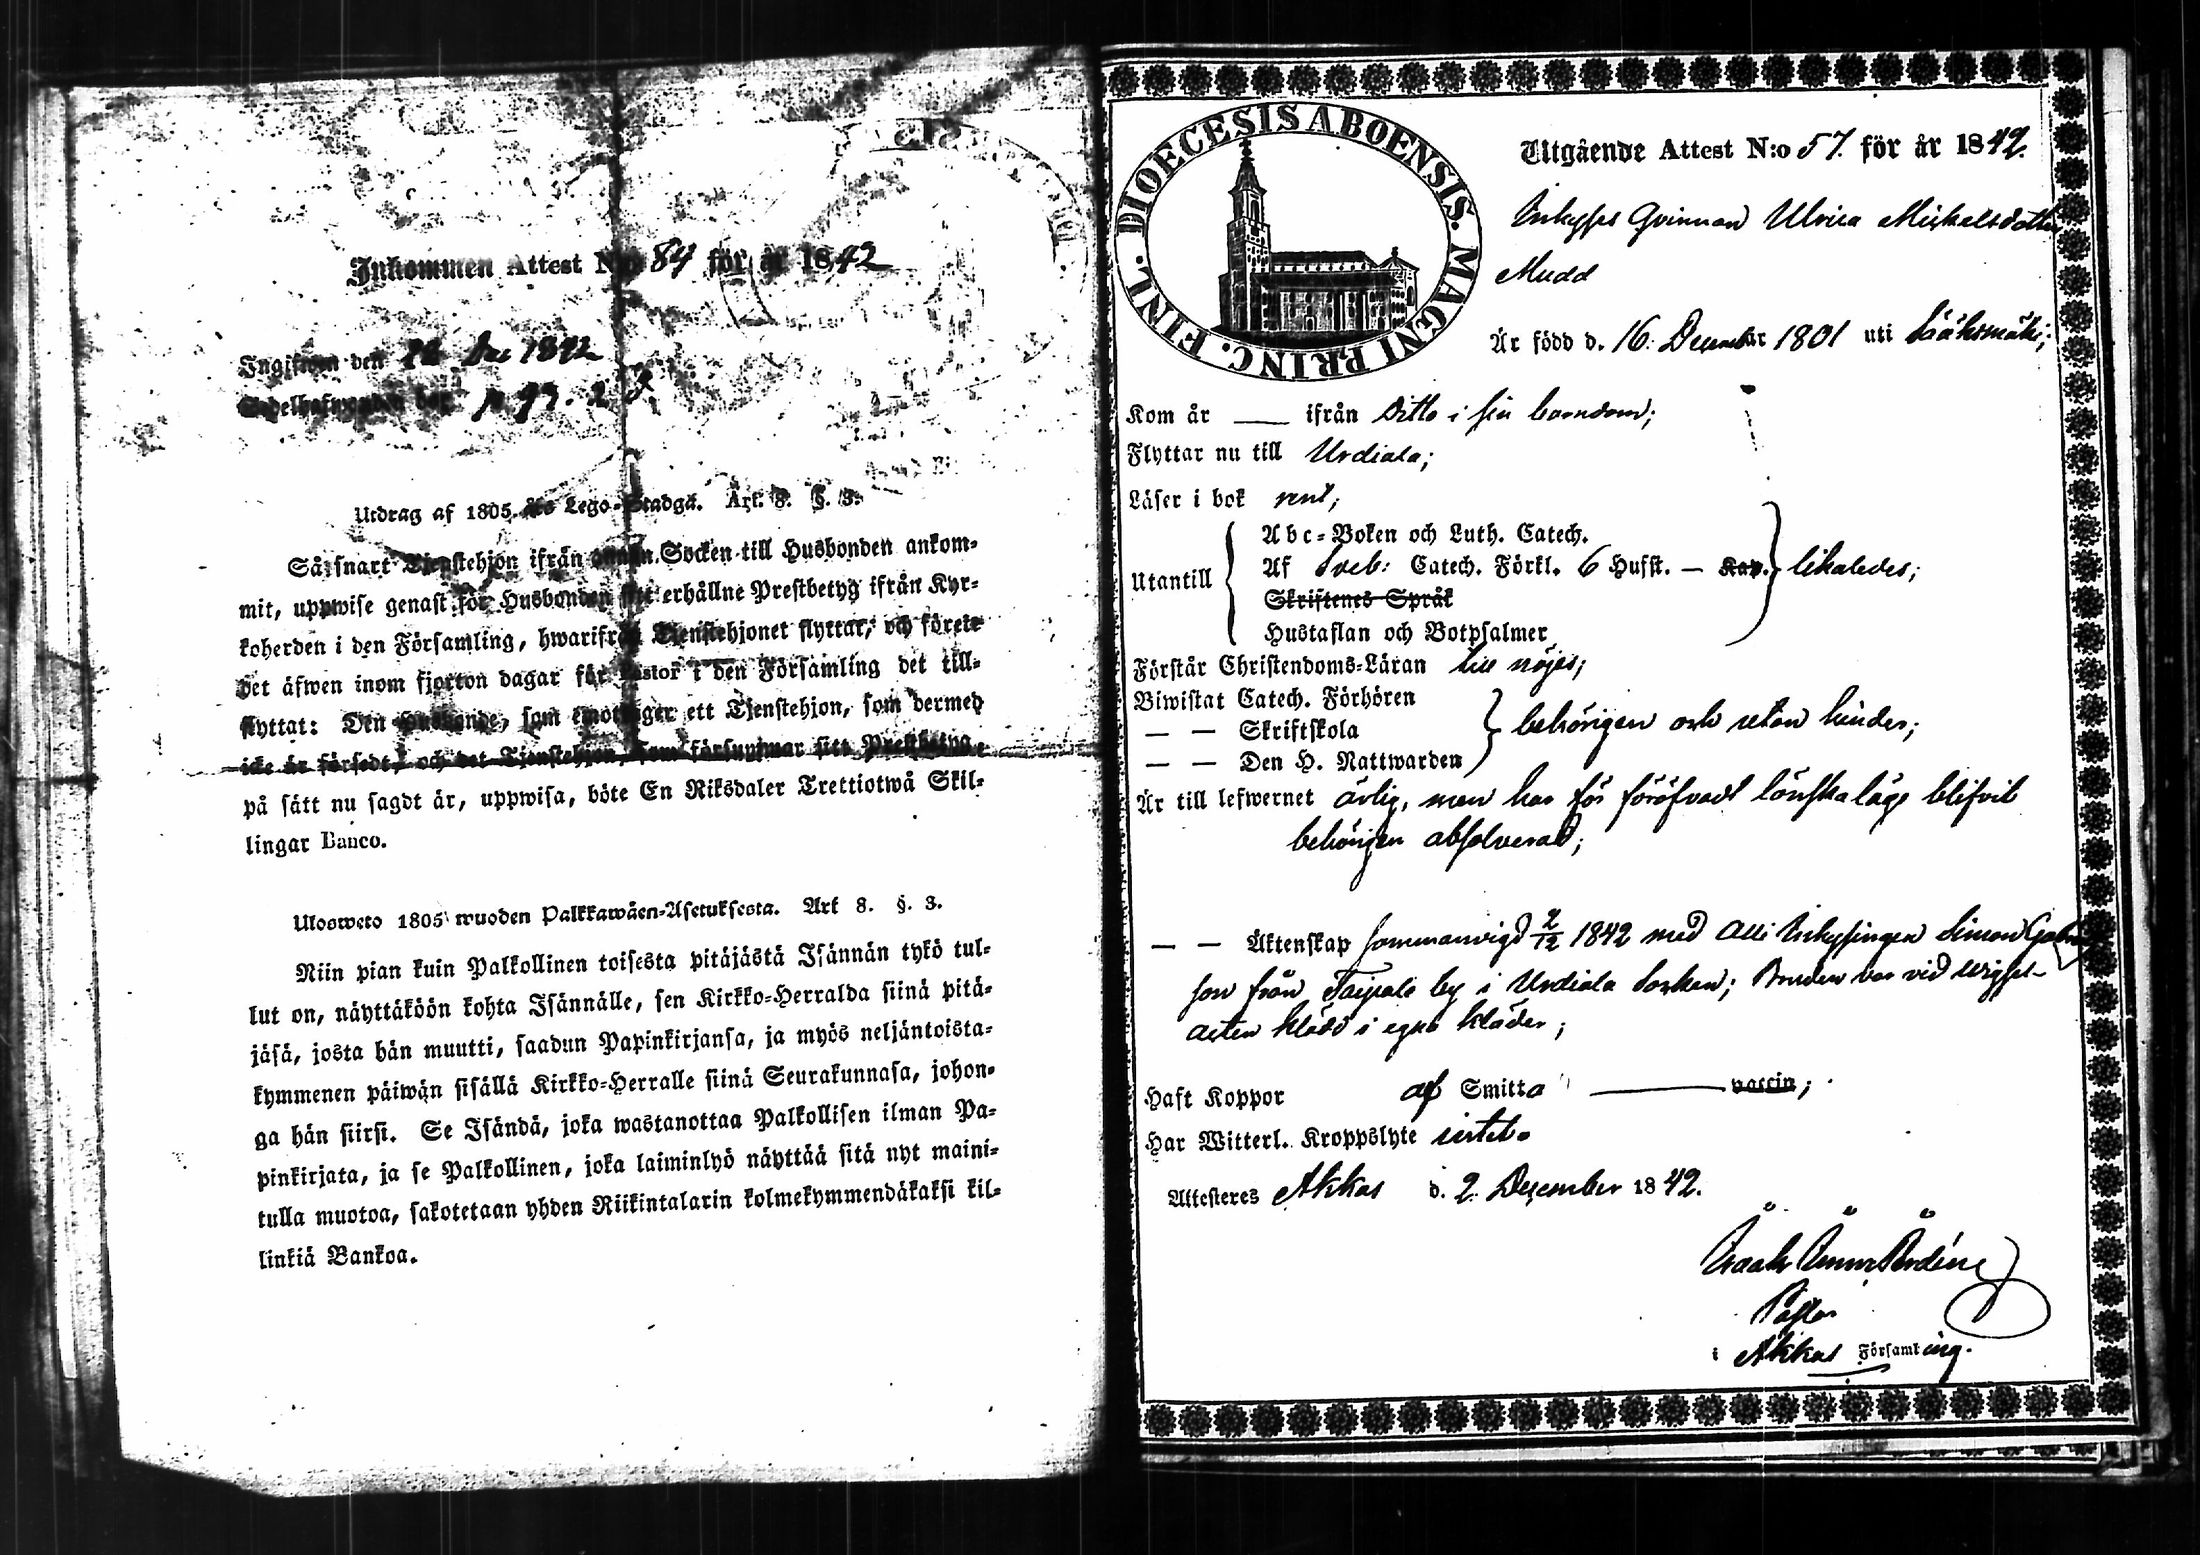 Inkommen Attest N:o 84 för år 1842
Ingifwen den 12 Dec 1842
p 93.
Utdrag af 1805 års Lego-Stadga. Art. 8. §. 3.
Så snart Tjenstehjon ifrån annan Socken till Husbonden ankom-
mit, uppwise genast för Husbonden sitt erhållne Prestbetyg ifrån Kyr-
koherden i den Församling, hwarifrån Tjenstehjonet flyttar, och förete
det äfwen inom fjorton dagar för Pastor i den Församling det till-
flyttat: Den Husbonde, som emottager ett Tjenstehjon, som dermed
icke är försedt, och det Tjenstehjon, som försummar sitt Prestbetyg,
på sätt nu sagdt är, uppwisa, böte En Riksdaler Trettiotwå Skil-
lingar Banco.
Ulosweto 1805 wuoden Palkkawäen-Asetuksesta. Art 8. §. 3.
Niin pian kuin Palkollinen toisesta pitäjästä Isännän tykö tul-
lut on, näyttäköön kohta Isännälle, sen Kirkko-Herralda siinä pitä-
jäsä, josta hän muutti, saadun Papinkirjansa, ja myös neljäntoista-
kymmenen päiwän sisällä Kirkko-Herralle siinä Seurakunnasa, johon-
ga hän siirsi. Se Isändä, joka wastanottaa Palkollisen ilman Pa-
pinkirjata, ja se Palkollinen, joka laiminlyö näyttää sitä nyt maini-
tulla muotoa, sakotetaan yhden Riikintalarin kolmekymmendäkaksi kil-
linkiä Bankoa.
DIOECESIS ABOENSIS. MAGNI PRINC. FINL.
Utgående Attest N:o 57. för år 1842.
Inhyses Qvinnan Ulrica Michelsdotter
Mudd
Är född d. 16. December 1801 uti Sääksmäki;
Kom år — ifrån Ditto i sin barndom;
Flyttar nu till Urdiala;
Läser i bok rent;
Utantill
Abc-Boken och Luth. Catech.
Af Sveb: Catech. Förkl. 6 Hufst. — Kap. likaledes;
Skriftenes Språk
Hustaflan och Botpsalmer
Förstår Christendoms-Läran till nöjes;
Biwistat Catech. Förhören
— — Skriftskola behörigen och utan hinder;
— — Den H. Nattwarden
Är till lefwernet ärlig, men har för föröfvadt lönskaläge blifvit
behörigen absolverad;
— — Äktenskap sammanvigd 2/12 1842 med Inhysingen Simon
son från Taipale by i Urdiala Socken; Bruden var vid wigsel-
acten klädd i egna kläder;
Haft Koppor af Smitta — vaccin;
Har Witterl. Kroppslyte intet.
Attesteres Akkas d. 2. December 1842.
Pastor
i Akkas Församling.